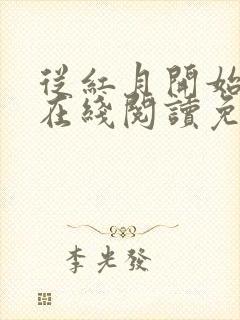 從紅月開始
在綫閱讀免
李光發